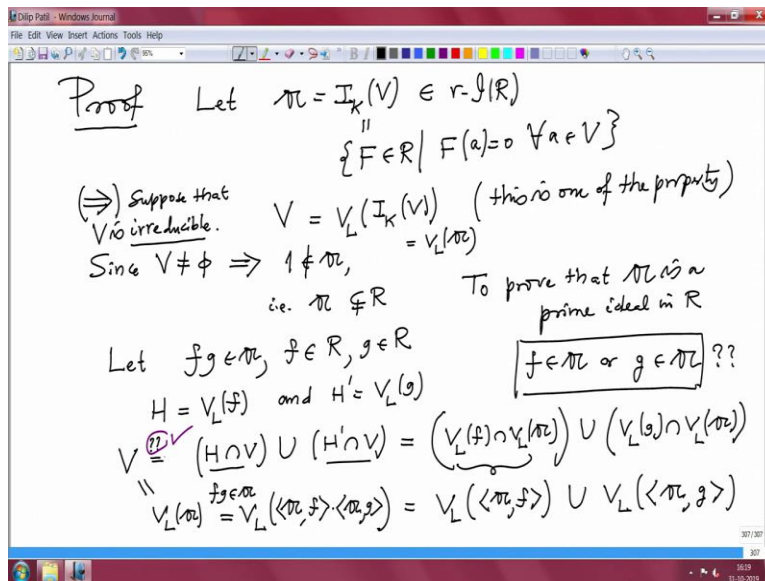 Dilip Patil - Windows Journal
File Edit View Insert Actions Tools Help
Proof Let 𝔞 = I_K(V) ∈ r-𝓘(R)
" {F ∈ R | F(a)=0 ∀ a ∈ V}
(⇒) Suppose that
V is irreducible.
V = V_L(I_K(V)) (this is one of the property)
= V_L(𝔞)
Since V ≠ ϕ ⇒ 1 ∉ 𝔞,
i.e. 𝔞 ⊊ R
To prove that 𝔞 is a
prime ideal in R
Let fg ∈ 𝔞, f ∈ R, g ∈ R
f ∈ 𝔞 or g ∈ 𝔞 ??
H = V_L(f) and H' = V_L(g)
V =?? ✓ (H∩V) ∪ (H'∩V) = (V_L(f) ∩ V_L(𝔞)) ∪ (V_L(g) ∩ V_L(𝔞))
"
fg∈𝔞
V_L(𝔞) = V_L(<𝔞,f>·<𝔞,g>) = V_L(<𝔞,f>) ∪ V_L(<𝔞,g>)
307/307
307
16:19
31-10-2019